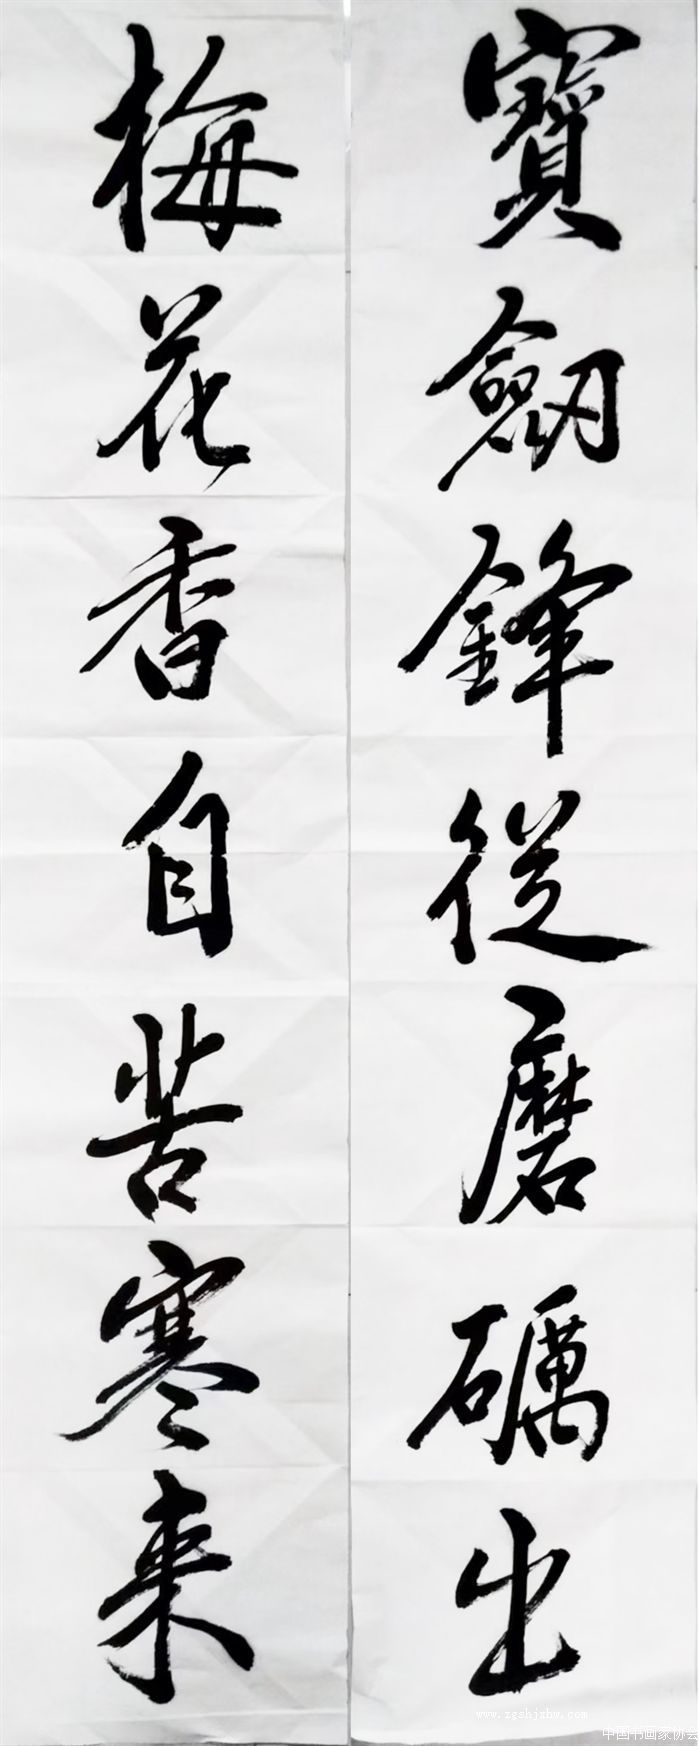 寶劒鋒從磨礪出
梅花香自苦寒来
www.zgshjxhw.com
中国书画家协会